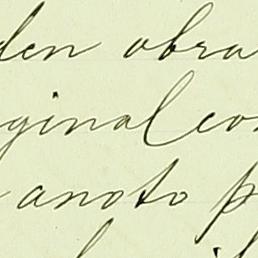 den obra
ginal co
anoto p